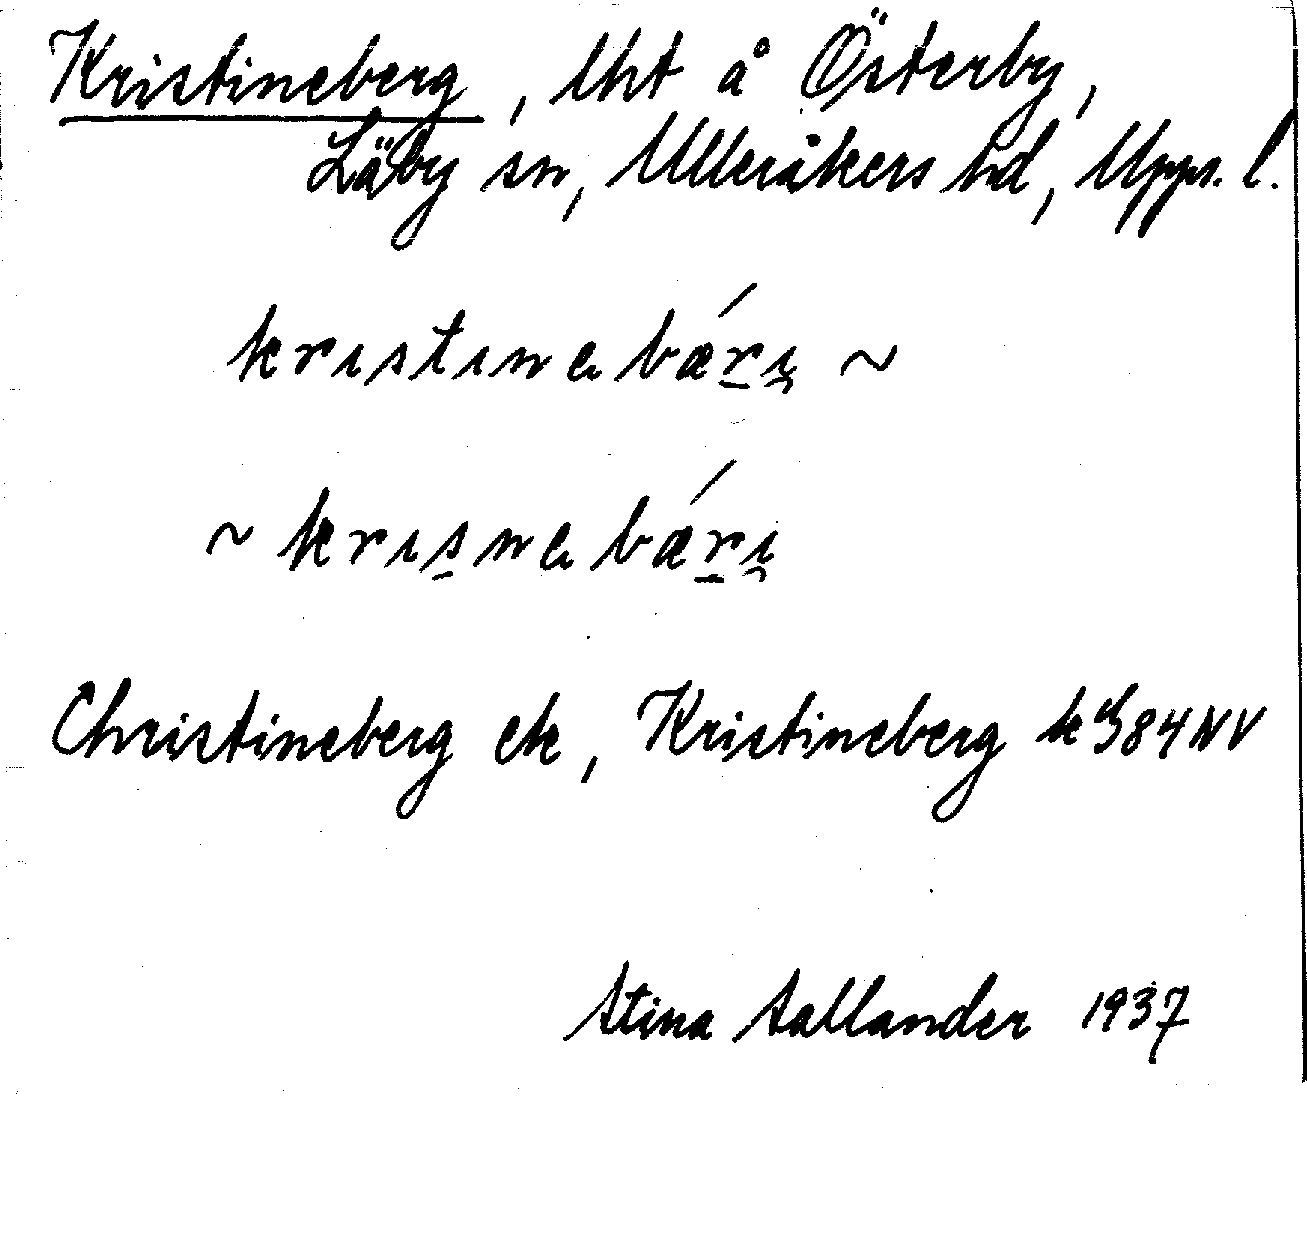 Kristineberg, lht å Österby,
Läby sn, Ulleråkers hd, Upps. l.
kristinebærị́ ~
~ krisnebærị́
Christineberg ek, Kristineberg k J84NV
Stina Sallander 1937